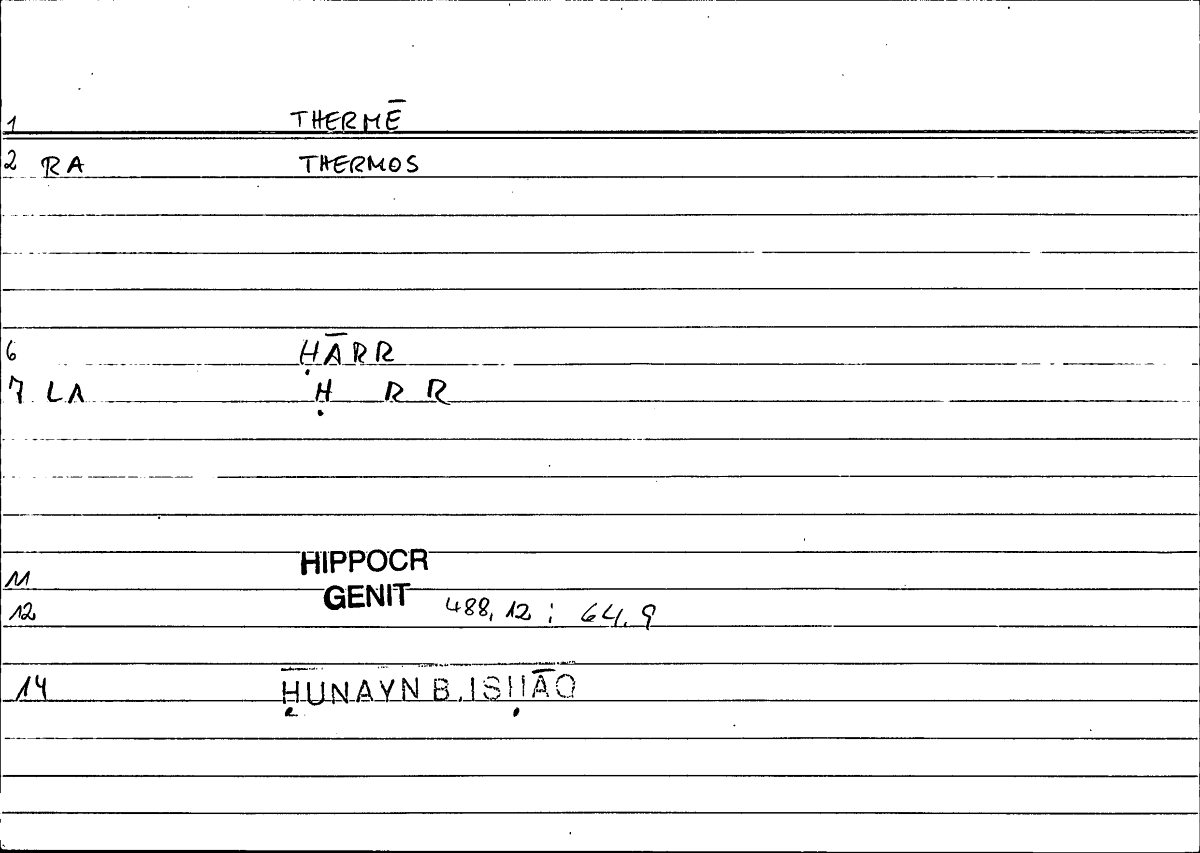 1 THERMĒ
2 RA THERMOS
6 ḤĀRR
7 LA Ḥ R R
11 HIPPOCR
12 GENIT 488, 12 ; 64, 9
14 ḤUNAYN B. ISḤĀQ